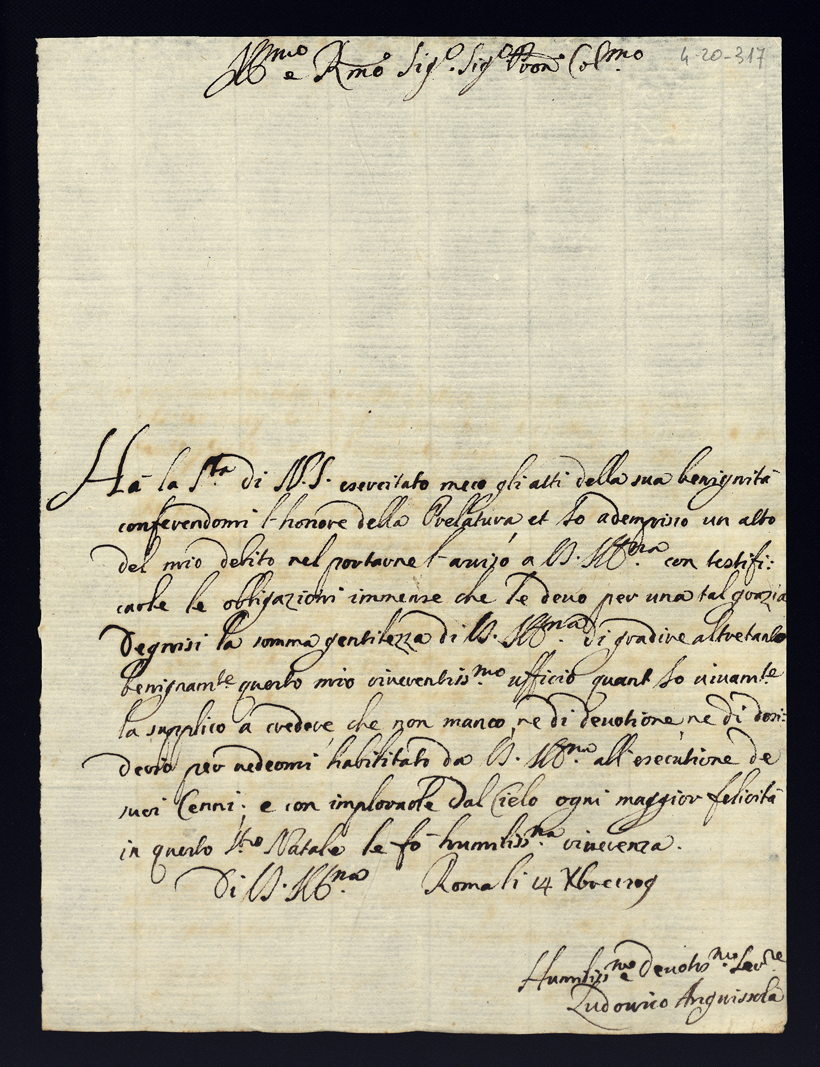 Ill.mo e R.mo Sig.r Sig.r P.ron Col.mo
4-20-317
Hà la S.tà di N.S. esercitato meco gli atti della sua benignità
conferendomi l'honore della Prelatura, et Io adempisco un atto
del mio debito nel portarne l'avviso a V.S. Ill.ma con testifi:
carle le obligazioni immense che le devo per una tal grazia
Degnisi la somma gentilezza di V.S. Ill.ma di gradire altretanto
benignam.te questo mio riverentiss.mo ufficio quant Io vivam.te
la supplico à credere, che non manco, ne di devotione, ne di desi:
derio per vedermi habilitato da V.S. Ill.ma all'esecutione de
suoi Cenni; e con implorarle dal Cielo ogni maggior felicità
in questo S.to Natale le fò humiliss.ma riverenza.
Di V.S. Ill.ma Roma li 14 Xbre 1709
Humiliss.mo e Devotis.mo Ser.re
Ludovico Anguissola